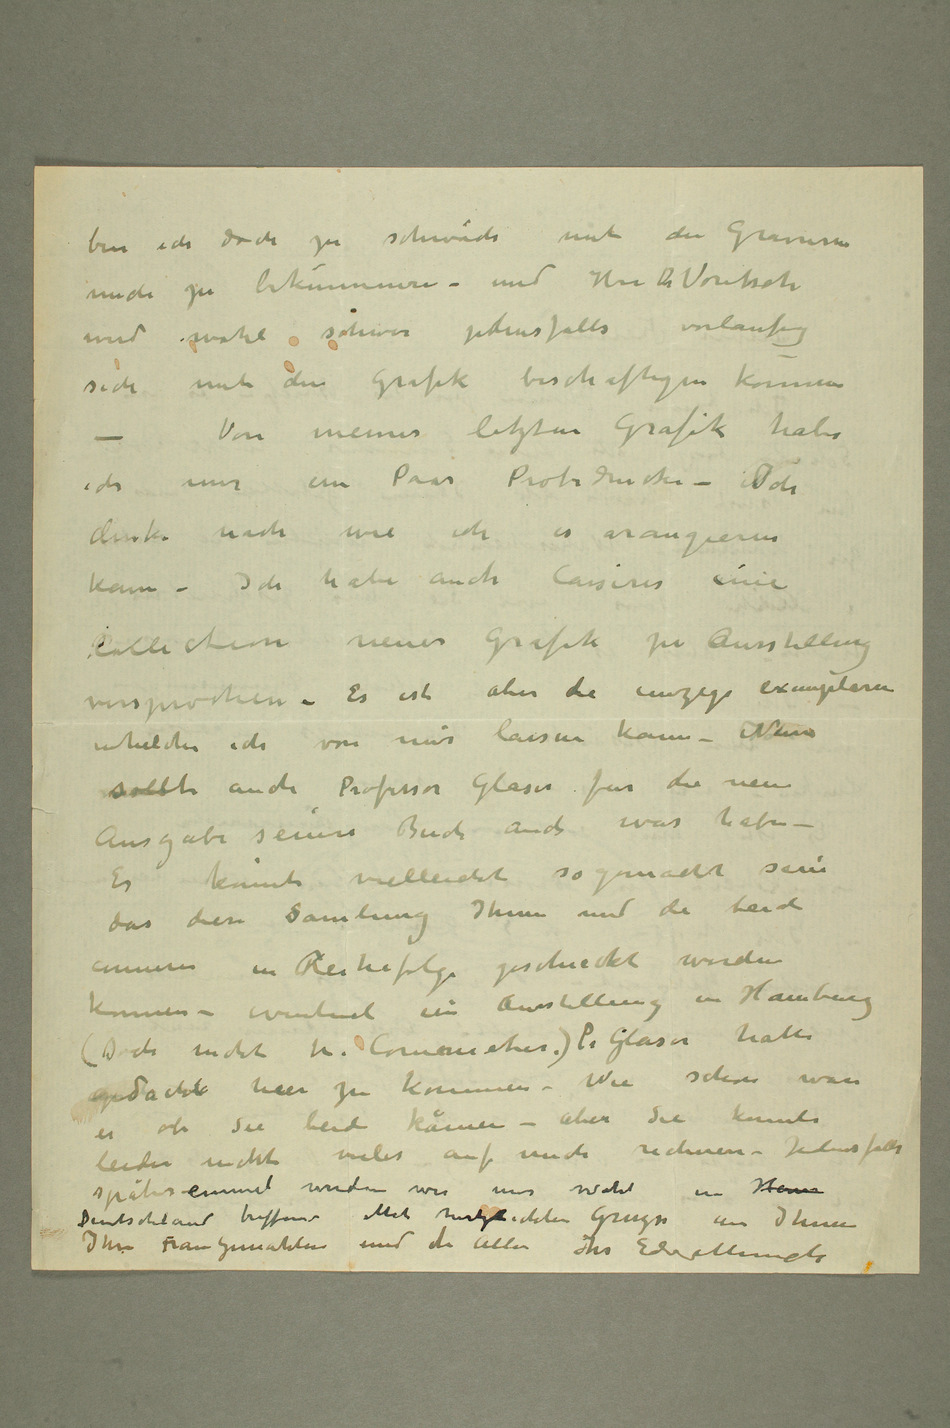 bin ich doch zu schwach mit die Gravuren
mich zu bekümmern – und Herr Dr Voretzsch
wird wohl schwer jedensfalls vorlaufig
sich mit die Grafik beschaftigen können
– Von meiner letzten Grafik habe
ich nur ein Paar Probedrucke – Ich
denke nach wie ich es arangieren
kann – Ich habe auch Cassirer eine
Collection neuer Grafik zu Ausstellung
versprochen – Es ist aber die einzige exemplaren
whelche ich von mir lassen kann – Nun
sollte auch Professor Glaser fur die neue
Ausgabe seines Buch auch was haben –
Es könnte vielleicht so gemacht sein
das diese Samlung Ihnen und die beide
anneren in Reihefolge geschickt worden
konnen – eventuel ein Ausstellung in Hamburg
(Doch nicht h. Commeter.) Pr Glaser hatte
gedacht hier zu kommen – Wie schön wäre
es ob Sie beide kämen – aber Sie konnte
leider nicht vieles auf mich rechnen – Jedensfalls
später einmal werden wir uns wohl in
Deutschland treffen – Mit herzlichten Grüsse an Ihnen
Ihre Frau Gemahlin und die alle Ihr Edv. Munch